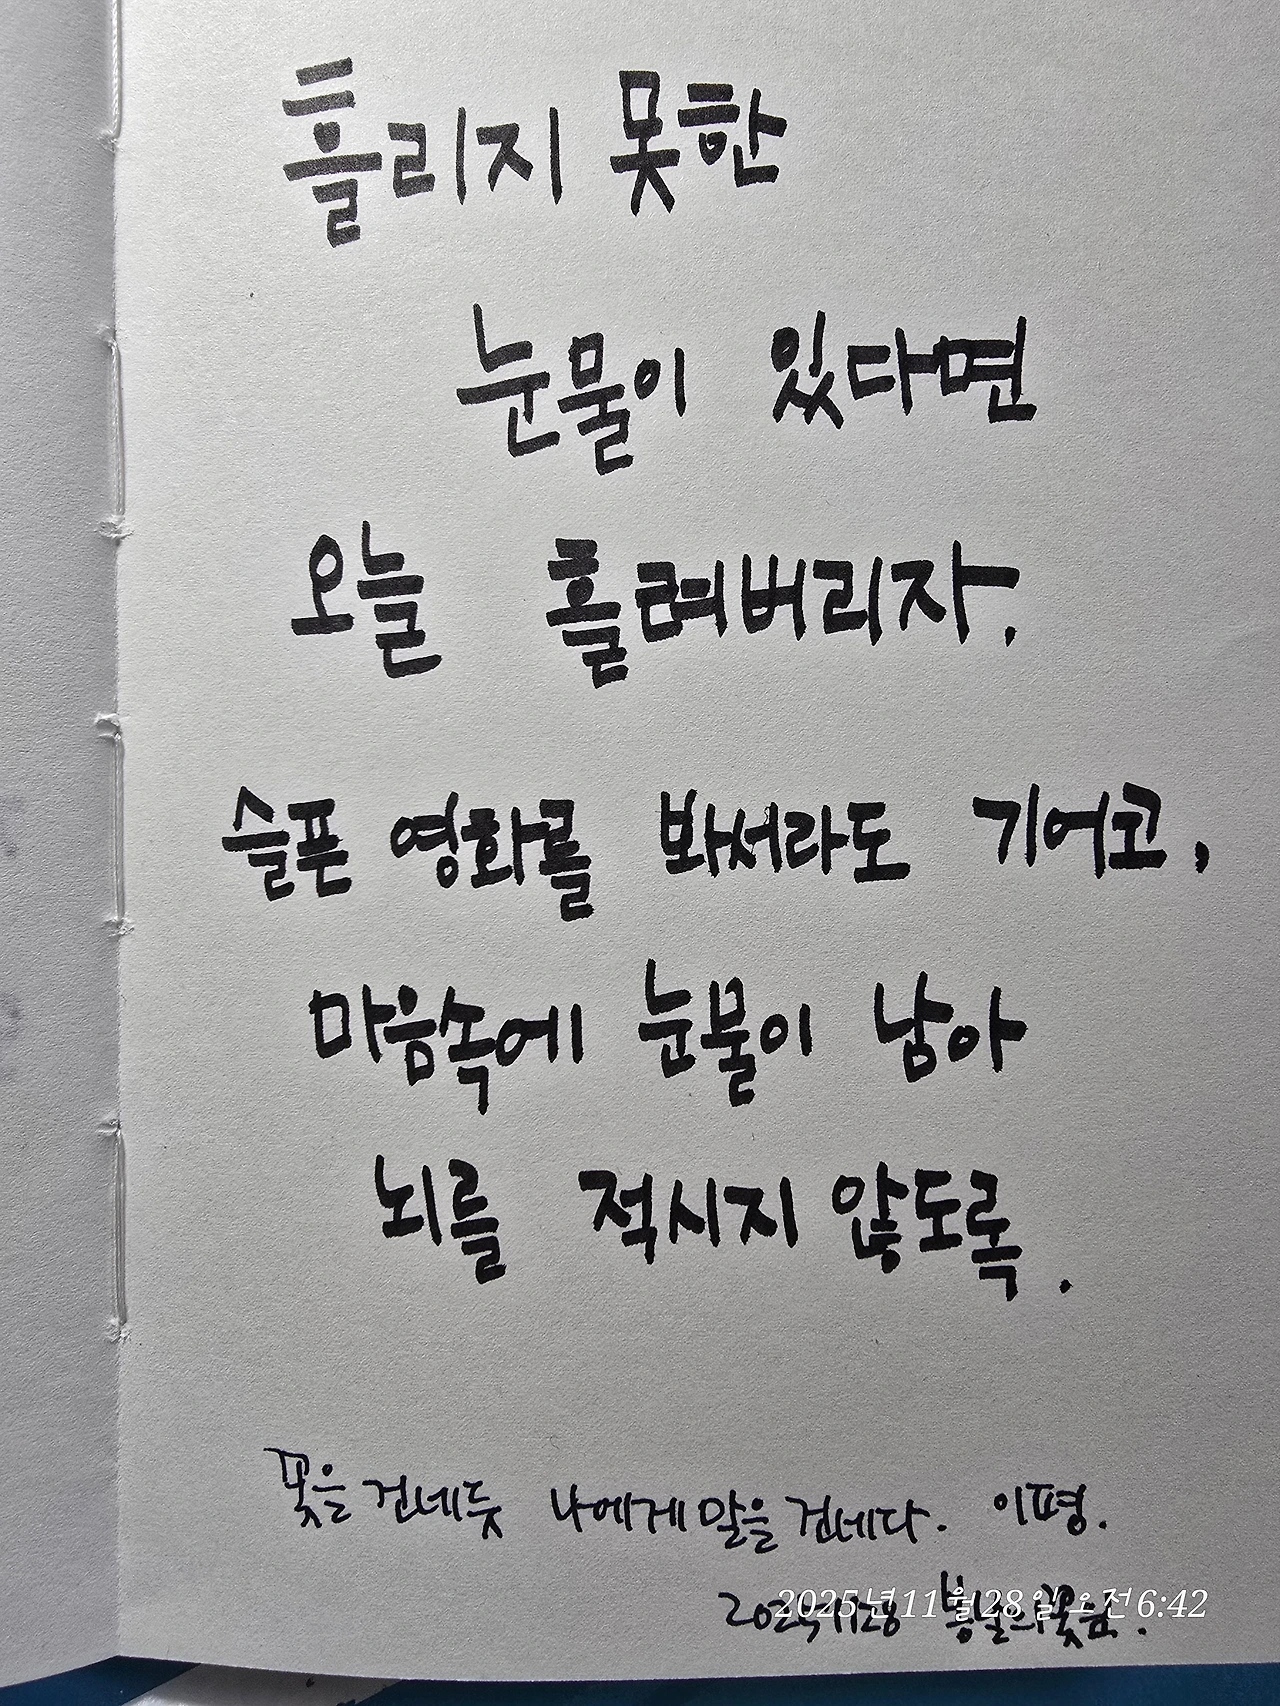 흘리지 못한
눈물이 있다면
오늘 흘려버리자.
슬픈 영화를 봐서라도 기어코,
마음속에 눈물이 남아
뇌를 적시지 않도록.
꽃을 건네듯 나에게 말을 건네다. 이평.
2025년11월28일오전6:42
20251128 봄날의꽃음.